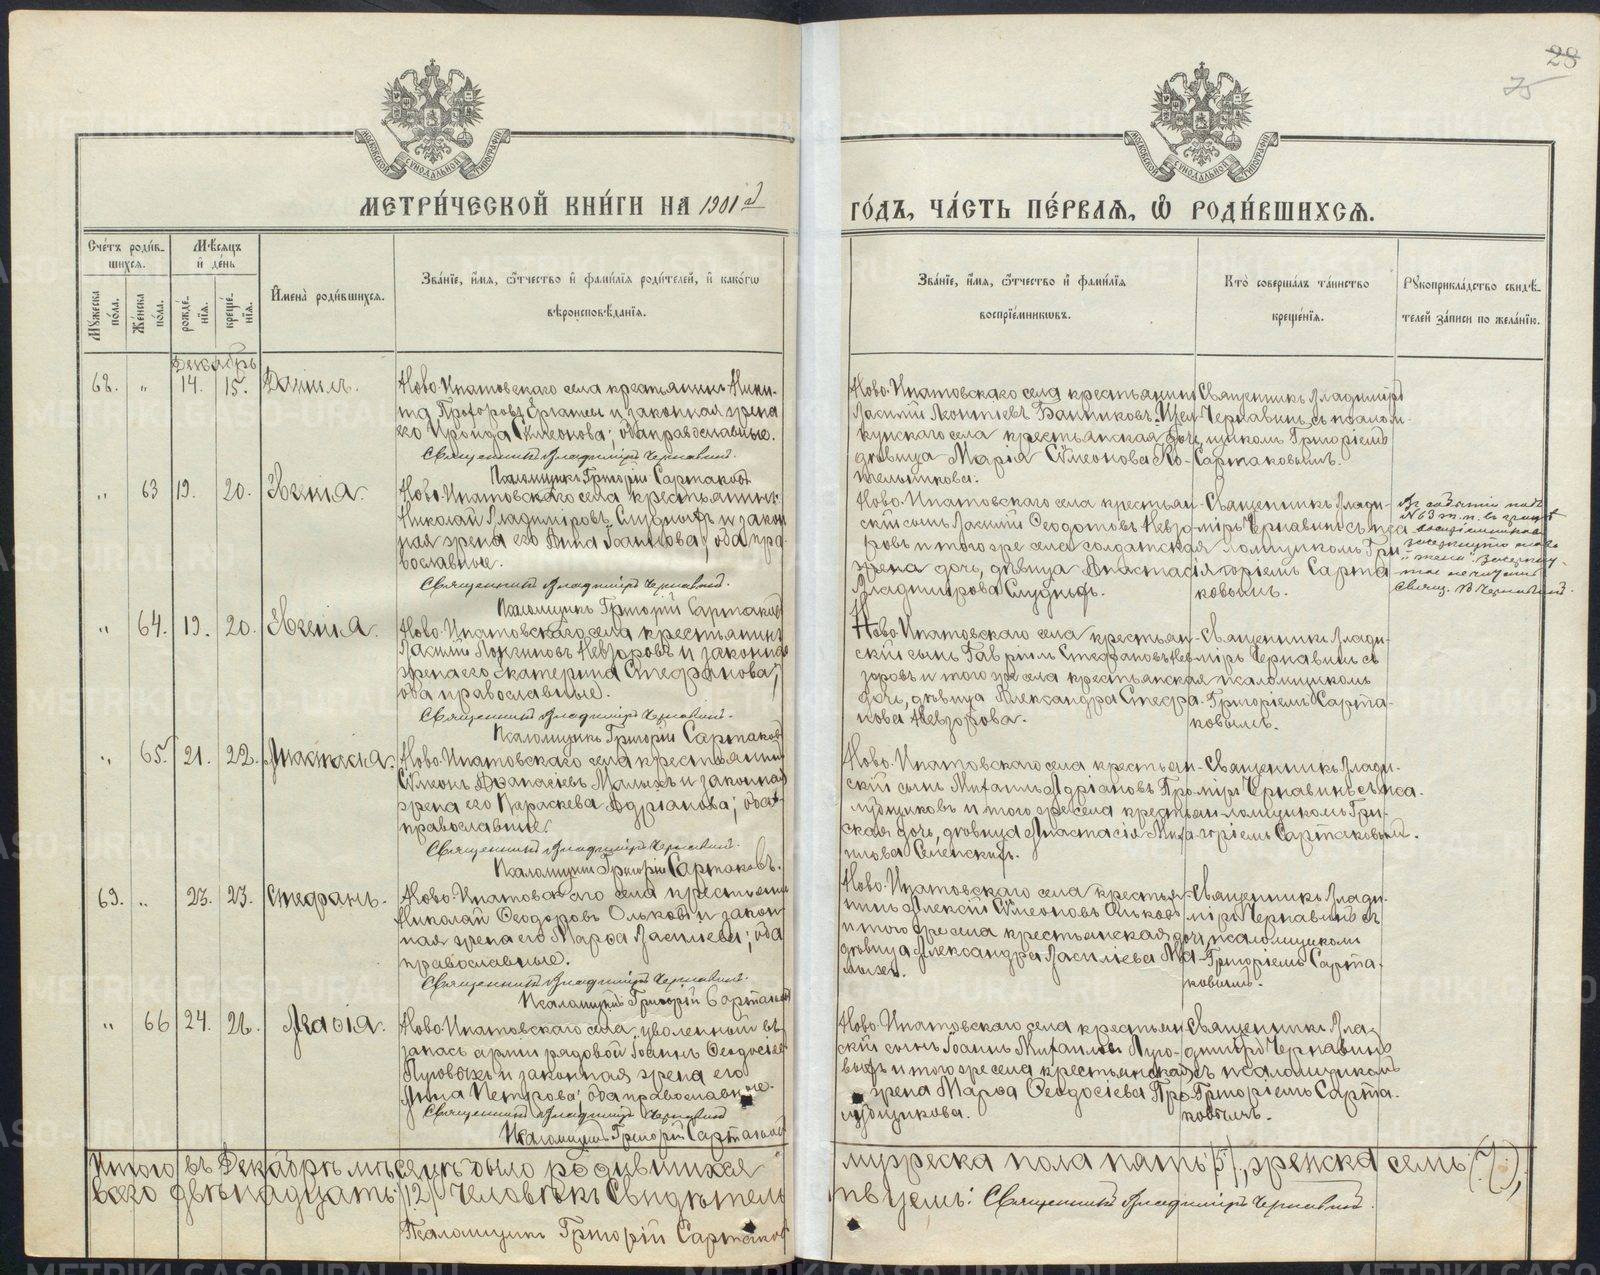 28
75
МОСКОВСКОЙ СѴНОДАЛЬНОЙ ТИПОГРАФІИ
МОСКОВСКОЙ СѴНОДАЛЬНОЙ ТИПОГРАФІИ
МЕТРИ́ЧЕСКОЙ КНИ́ГИ НА 1901й
ГО́ДЪ, ЧА́СТЬ ПЕ́РВАѦ, Ѡ҆ РОДИ́ВШИХСѦ.
Сче́тъ роди́в-
шихсѧ.
Мꙋжеска по́ла.
Же́нска по́ла.
Мѣ́сѧцъ
и҆ де́нь
рожде́нїѧ.
креще́нїѧ.
И҆мена̀ роди́вшихсѧ.
Зва́нїе, и҆́мѧ, ѻ҆́тчество и҆ фами́лїѧ роди́телей, и҆ како́гѡ
вѣроисповѣ́данїѧ.
Зва́нїе, и҆́мѧ, ѻ҆́тчество и҆ фами́лїѧ
воспрїе́мникѡвъ.
Кто̀ соверша́лъ та́инство
креще́нїѧ.
Рꙋкоприкла́дство свидѣ́-
телей за́писи по жела́нїю.
Декабрь
68. " 14. 15. Данiилъ.
Ново-Ипатовскаго села крестьянинъ Ники-
та Прохоровъ и законная жена
его Ираида Сѵмеонова; оба православные.
Священникъ Владимiръ Чернавинъ.
Псаломщикъ Григорiй Сартаковъ
Ново-Ипатовскаго села крестьянинъ
Василiй Леонтiевъ Банниковъ и Щел-
кунскаго села крестьянская дочь,
дѣвица Марiя Сѵмеонова Ко-
тельникова.
Священникъ Владимiръ
Чернавинъ съ псалом-
щикомъ Григорiемъ
Сартаковымъ.
" 63 19. 20. Евгенiя.
Ново-Ипатовскаго села крестьянинъ
Николай Владимiровъ и закон-
ная жена его Анна Iоаннова; оба пра-
вославные.
Священникъ Владимiръ Чернавинъ.
Псаломщикъ Григорiй Сартаковъ
Ново-Ипатовскаго села крестьян-
скiй сынъ Василiй Ѳеодотовъ Невзо-
ровъ и того же села солдатская
дочь, дѣвица Анастасiя
Владимiрова
Священникъ Влади-
мiръ Чернавинъ съ пса-
ломщикомъ Гри-
горiемъ Сарта-
ковымъ.
№ 63
Свящ. В. Чернавинъ.
" 64. 19. 20. Евгенiя.
Ново-Ипатовскаго села крестьянинъ
Василiй Логгиновъ Невзоровъ и законная
жена его Екатерина Стефанова;
оба православные.
Священникъ Владимiръ Чернавинъ.
Псаломщикъ Григорiй Сартаковъ
Ново-Ипатовскаго села крестьян-
скiй сынъ Гаврiилъ Стефановъ Нев-
зоровъ и того же села крестьянская
дочь, дѣвица Александра Стефа-
нова Невзорова.
Священникъ Влади-
мiръ Чернавинъ съ
псаломщикомъ
Григорiемъ Сарта-
ковымъ.
" 65. 21. 22. Анастасiя.
Ново-Ипатовскаго села крестьянинъ
Сѵмеонъ Аѳанасiевъ Малыхъ и законная
жена его Параскева Адрiанова; оба
православные
Священникъ Владимiръ Чернавинъ.
Псаломщикъ Григорiй Сартаковъ.
Ново-Ипатовскаго села крестьян-
скiй сынъ Михаилъ Адрiановъ Про-
лубщиковъ и того же села крестьян-
ская дочь, дѣвица Анастасiя Миха-
илова
Священникъ Влади-
мiръ Чернавинъ съ пса-
ломщикомъ Гри-
горiемъ Сартаковымъ.
69. " 23. 23. Стефанъ.
Ново-Ипатовскаго села крестьянинъ
Николай Ѳеодоровъ Ольковъ и закон-
ная жена его Марѳа Василiева; оба
православные.
Священникъ Владимiръ Чернавинъ.
Псаломщикъ Григорiй Сартаковъ
Ново-Ипатовскаго села крестья-
нинъ Алексiй Сѵмеоновъ Ольковъ
и того же села крестьянская дочь,
дѣвица Александра Василiева Ма-
лыхъ.
Священникъ Влади-
мiръ Чернавинъ съ
псаломщикомъ
Григорiемъ Сарта-
ковымъ.
" 66 24. 26.
Ново-Ипатовскаго села, уволенный въ
запасъ армiи рядовой Iоаннъ Ѳеодосiевъ
Пуговыхъ и законная жена его
Анна Петрова; оба православные.
Священникъ Владимiръ Чернавинъ
Псаломщикъ Григорiй Сартаковъ
Ново-Ипатовскаго села крестьян-
скiй сынъ Iоаннъ Михаиловъ Пуго-
выхъ и того же села крестьянская
жена Марѳа Ѳеодосiева Про-
лубщикова.
Священникъ Вла-
димiръ Чернавинъ
съ псаломщикомъ
Григорiемъ Сарта-
ковымъ.
Итого въ Декабрѣ мѣсяцѣ было родившихся мужеска пола пять (5), женска семь (7),
всего двѣнадцать (12) человѣкъ Свидѣтель-
ствуемъ: Священникъ Владимiръ Чернавинъ.
Псаломщикъ Григорiй Сартаковъ